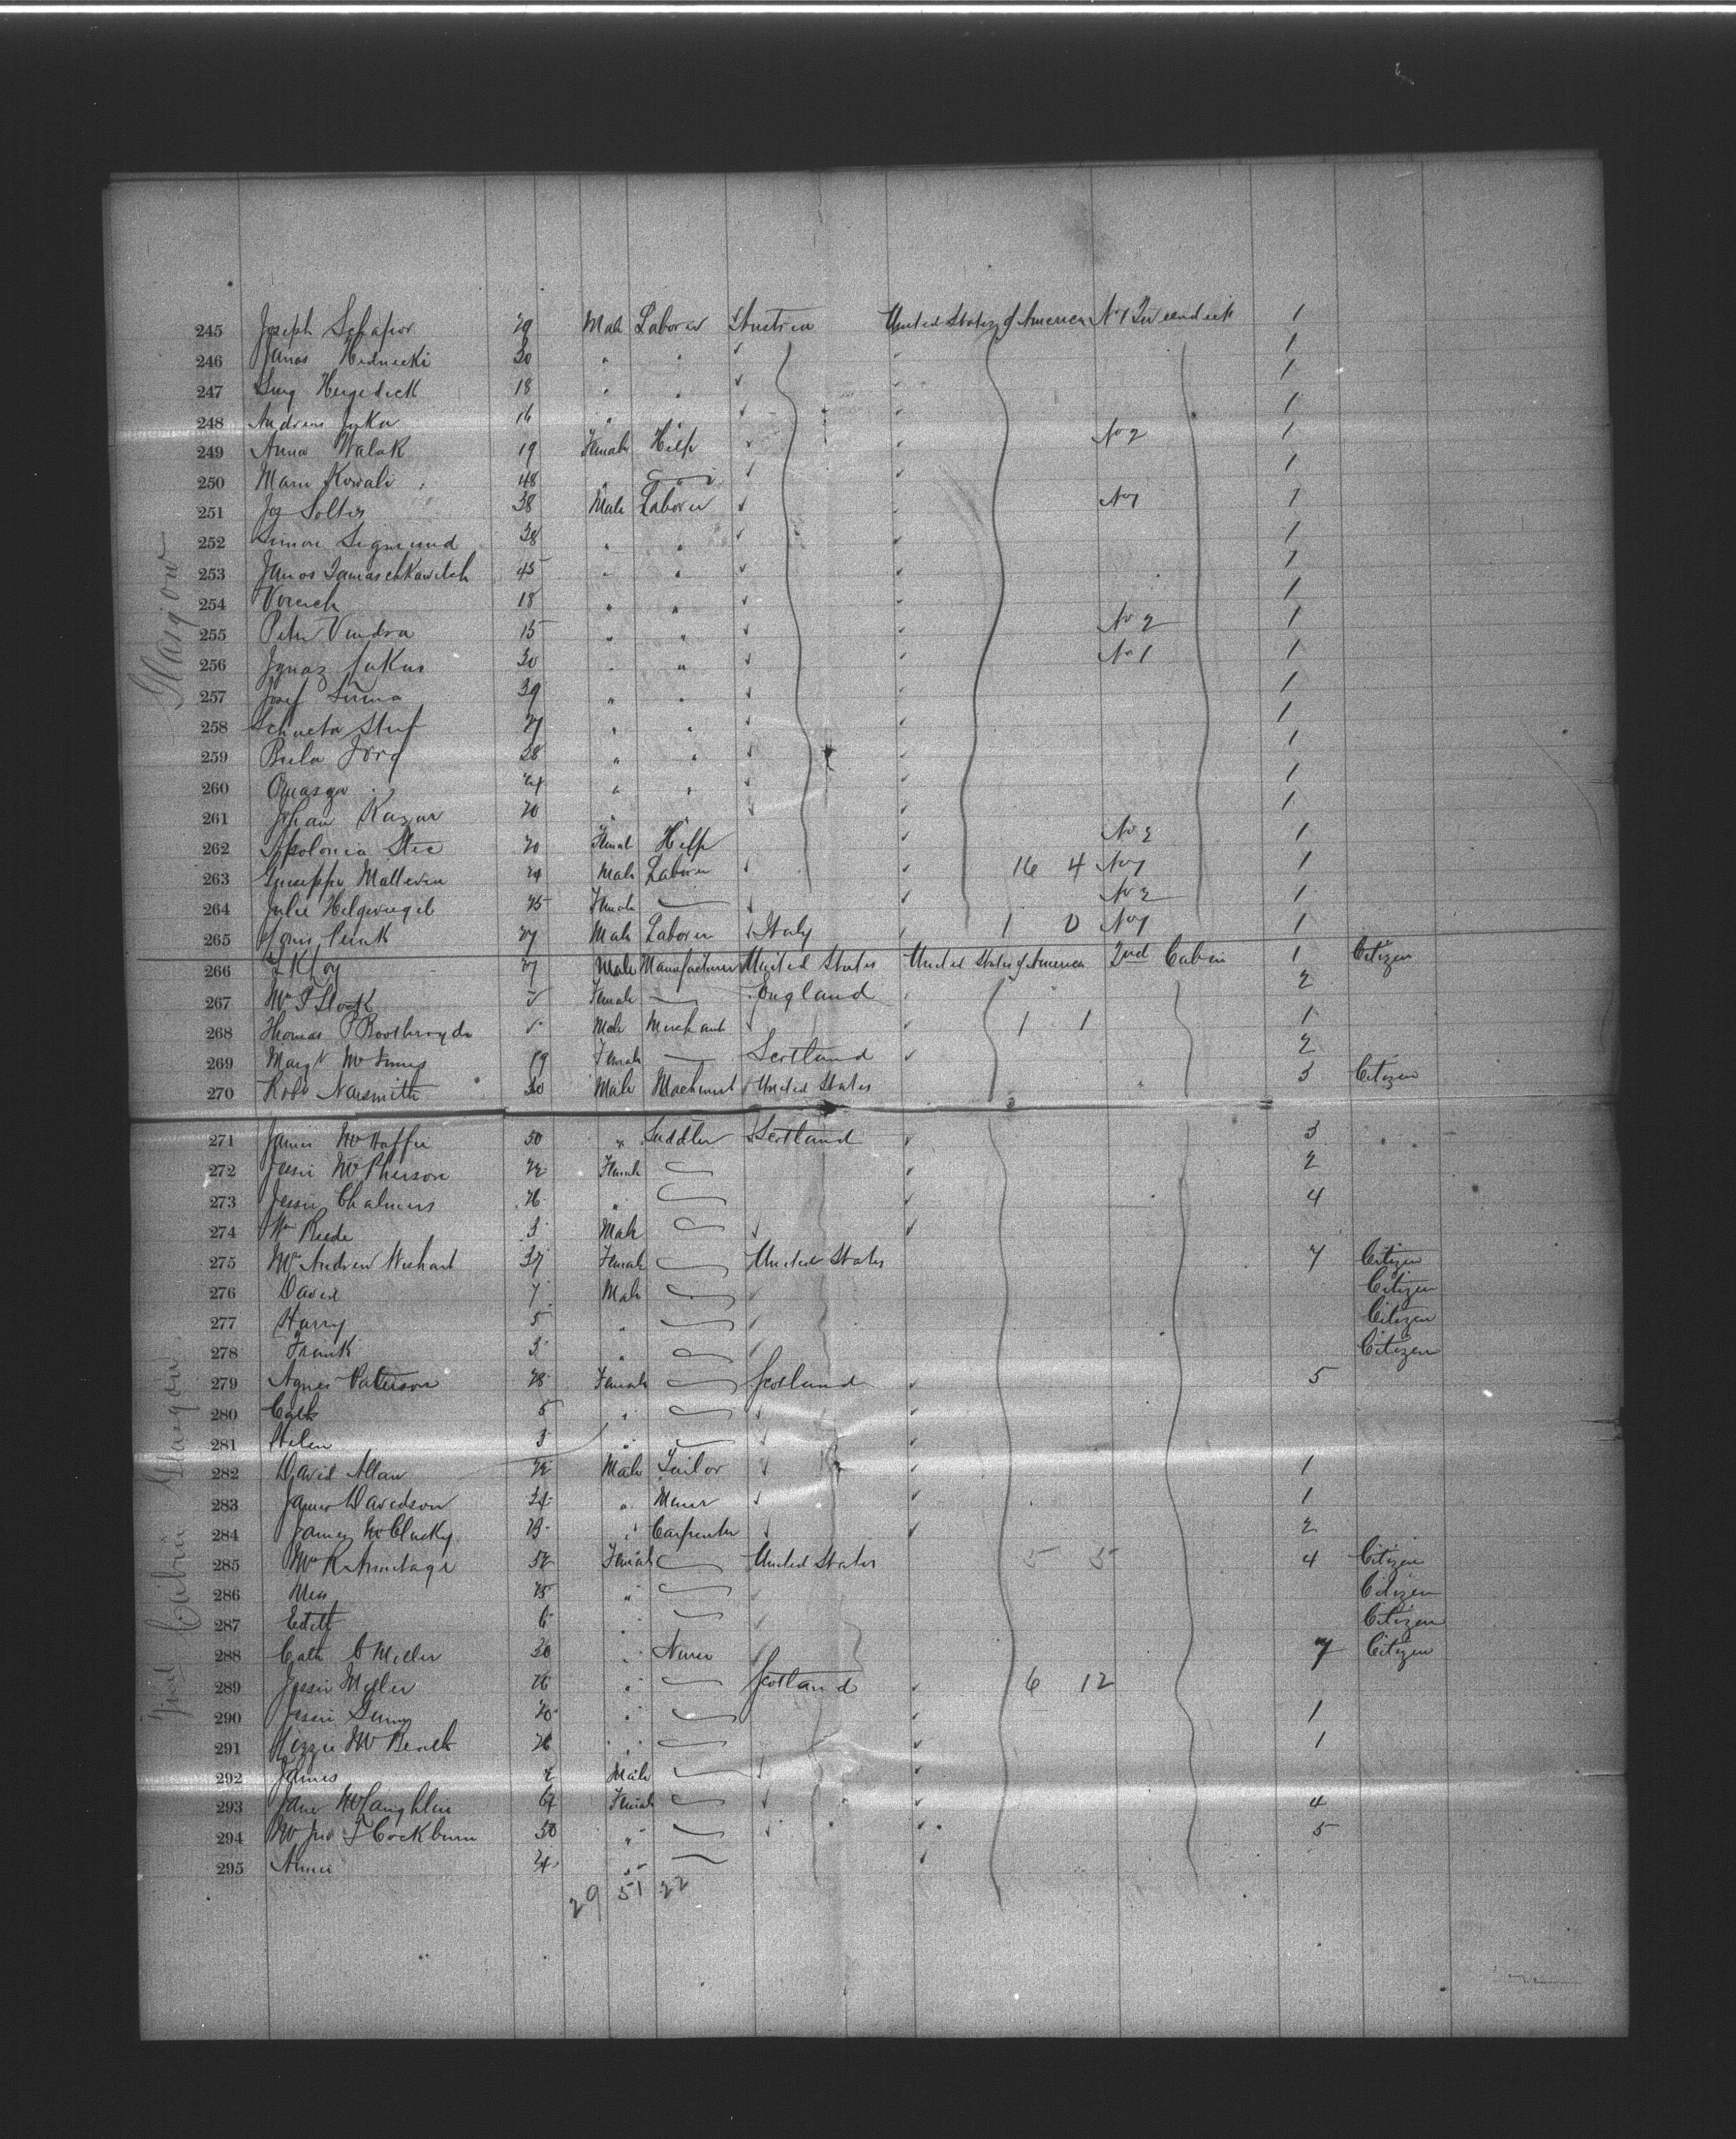 245 Joseph Schafior 29 Male Laborer Austria United States of America No 1 1
246 Janos Hednecki 30 " " 1
247 Hergedick 18 " " 1
248 Andreas 16 " " 1
249 Anna Walak 19 Female Help No 2 1
250 Mary Kowali 48 " " 1
251 Jos Soltis 38 Male Laborer No 1 1
252 Simon Sigmund 38 " " 1
253 Janos 45 " " 1
254 18 " " 1
255 Peter Vendra 15 " " No 2 1
256 Ignaz Lukus 30 " " No 1 1
257 Josef 39 " " 1
258 27 " " 1
259 Bela 28 " " 1
260 24 " " 1
261 Johan Kazar 20 " 1
262 Apolonia Stec 20 Female Help No 2 1
263 Guiseppe 24 Male Laborer 16 4 No 1 1
264 Julie 25 Female No 2 1
265 27 Male Laborer Italy 1 0 No 1 1
Glasgow
266 27 Male Manufacturer United States United States of America 2nd Cabin 1 Citizen
267 Mrs Stock Female England 2
268 Thomas P Boothroyd Male Merchant 1 1 1
269 Margt 19 Female Scotland 2
270 Robt Naismith 30 Male Machinist United States 3 Citizen
271 James McHaffie 50 " Saddler Scotland 3
272 Jessie McPherson 22 Female 2
273 Jessie Chalmers 26 " 4
274 Wm Reede 3 Male
275 Mrs Andrew Wishart 37 Female United States 7 Citizen
276 David 7 Male Citizen
277 Harry 5 " Citizen
278 Frank 3 " Citizen
279 Agnes Paterson 28 Female Scotland 5
280 Cath 5 "
281 Helen 3 "
282 David Allan 22 Male Tailor 1
283 James Davidson 34 " Miner 1
284 James McClucky 23 " Carpenter 2
285 Mrs R Armitage 52 Female United States 5 5 4 Citizen
286 Miss 25 " Citizen
287 Edith 6 " Citizen
288 Cath C Miller 30 " Nurse 7 Citizen
289 Jessie Miller 26 " Scotland 6 12
290 Jessie 20 " 1
291 Lizzie McBeath 26 " 1
292 James 2 Male
293 Jane McLaughlin 64 Female 4
294 Mrs Jno T Cockburn 50 " 5
295 Annie 24 "
Cabin Glasgow
29 51 22